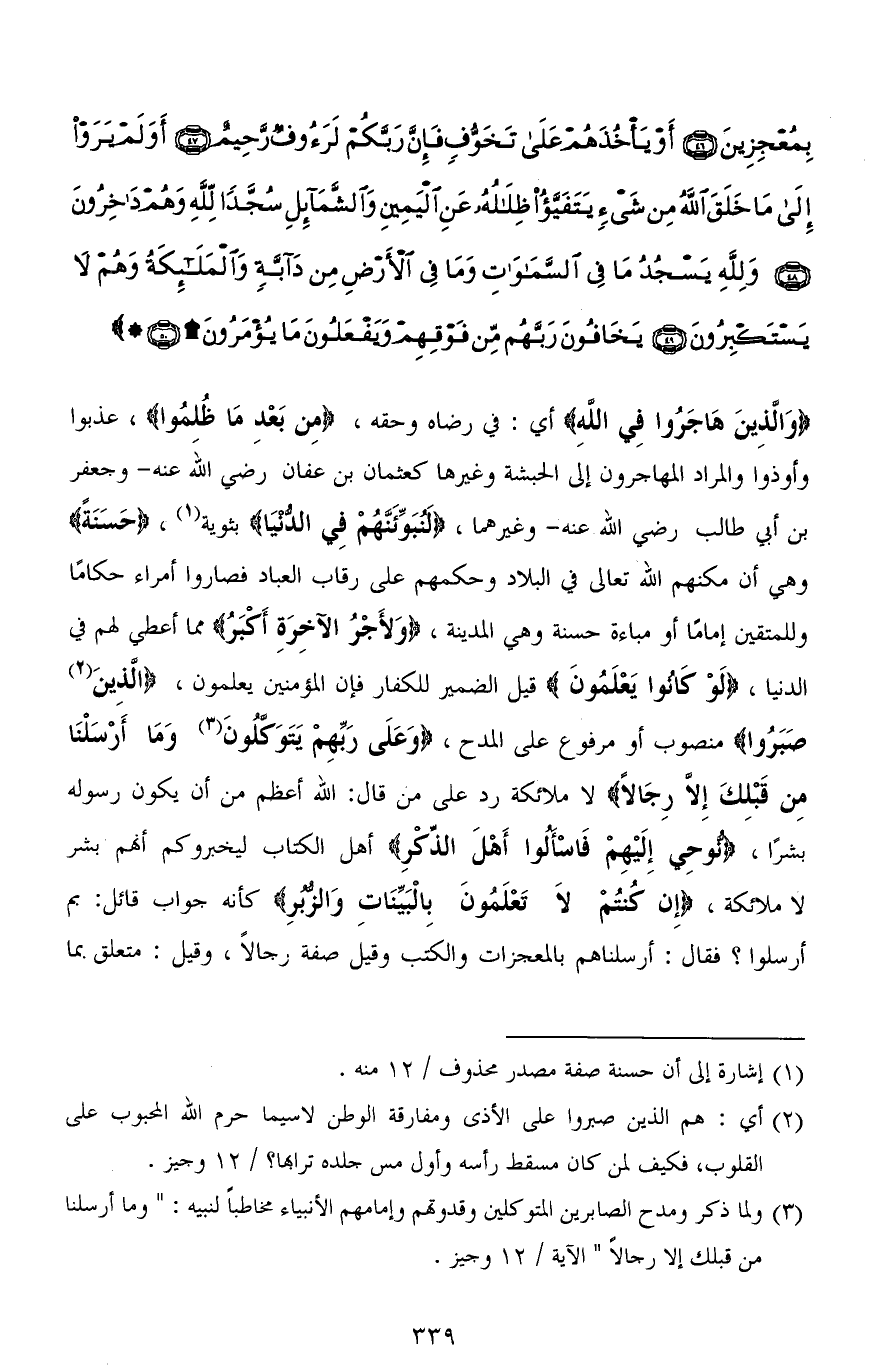 بِمُعْجِزِينَ ﴿٤٦﴾ أَوْ يَأْخُذَهُمْ عَلَىٰ تَخَوُّفٍ فَإِنَّ رَبَّكُمْ لَرَءُوفٌ رَّحِيمٌ ﴿٤٧﴾ أَوَلَمْ يَرَوْا۟
إِلَىٰ مَا خَلَقَ ٱللَّهُ مِن شَىْءٍ يَتَفَيَّؤُا۟ ظِلَٰلُهُۥ عَنِ ٱلْيَمِينِ وَٱلشَّمَآئِلِ سُجَّدًا لِّلَّهِ وَهُمْ دَٰخِرُونَ
﴿٤٨﴾ وَلِلَّهِ يَسْجُدُ مَا فِى ٱلسَّمَٰوَٰتِ وَمَا فِى ٱلْأَرْضِ مِن دَآبَّةٍ وَٱلْمَلَٰٓئِكَةُ وَهُمْ لَا
يَسْتَكْبِرُونَ ﴿٤٩﴾ يَخَافُونَ رَبَّهُم مِّن فَوْقِهِمْ وَيَفْعَلُونَ مَا يُؤْمَرُونَ ۩ ﴿٥٠﴾ *﴾
﴿وَالَّذِينَ هَاجَرُوا فِي اللَّهِ﴾ أي : في رضاه وحقه ، ﴿مِن بَعْدِ مَا ظُلِمُوا﴾ ، عذبوا
وأوذوا والمراد المهاجرون إلى الحبشة وغيرها كعثمان بن عفان رضي الله عنه– وجعفر
بن أبي طالب رضي الله عنه– وغيرهما ، ﴿لَنُبَوِّئَنَّهُمْ فِي الدُّنْيَا﴾ بثوية(١) ، ﴿حَسَنَةً﴾
وهي أن مكنهم الله تعالى في البلاد وحكمهم على رقاب العباد فصاروا أمراء حكامًا
وللمتقين إمامًا أو مباءة حسنة وهي المدينة ، ﴿وَلأَجْرُ الآخِرَةِ أَكْبَرُ﴾ مما أعطي لهم في
الدنيا ، ﴿لَوْ كَانُوا يَعْلَمُونَ ﴾ قيل الضمير للكفار فإن المؤمنين يعلمون ، ﴿الَّذِينَ(٢)
صَبَرُوا﴾ منصوب أو مرفوع على المدح ، ﴿وَعَلَى رَبِّهِمْ يَتَوَكَّلُونَ(٣) وَمَا أَرْسَلْنَا
مِن قَبْلِكَ إِلاَّ رِجَالاً﴾ لا ملائكة رد على من قال: الله أعظم من أن يكون رسوله
بشرًا ، ﴿نُّوحِي إِلَيْهِمْ فَاسْأَلُوا أَهْلَ الذِّكْرِ﴾ أهل الكتاب ليخبروكم أنهم بشر
لا ملائكة ، ﴿إِن كُنتُمْ لاَ تَعْلَمُونَ بِالْبَيِّنَاتِ وَالزُّبُرِ﴾ كأنه جواب قائل: بم
أرسلوا ؟ فقال : أرسلناهم بالمعجزات والكتب وقيل صفة رجالاً ، وقيل : متعلق بما
(١) إشارة إلى أن حسنة صفة مصدر محذوف / ١٢ منه .
(٢) أي : هم الذين صبروا على الأذى ومفارقة الوطن لاسيما حرم الله المحبوب على
القلوب، فكيف لمن كان مسقط رأسه وأول مس جلده ترابها؟ / ١٢ وجيز .
(٣) ولما ذكر ومدح الصابرين المتوكلين وقدوتهم وإمامهم الأنبياء مخاطباً لنبيه : " وما أرسلنا
من قبلك إلا رجالاً " الآية / ١٢ وجيز .
٣٣٩